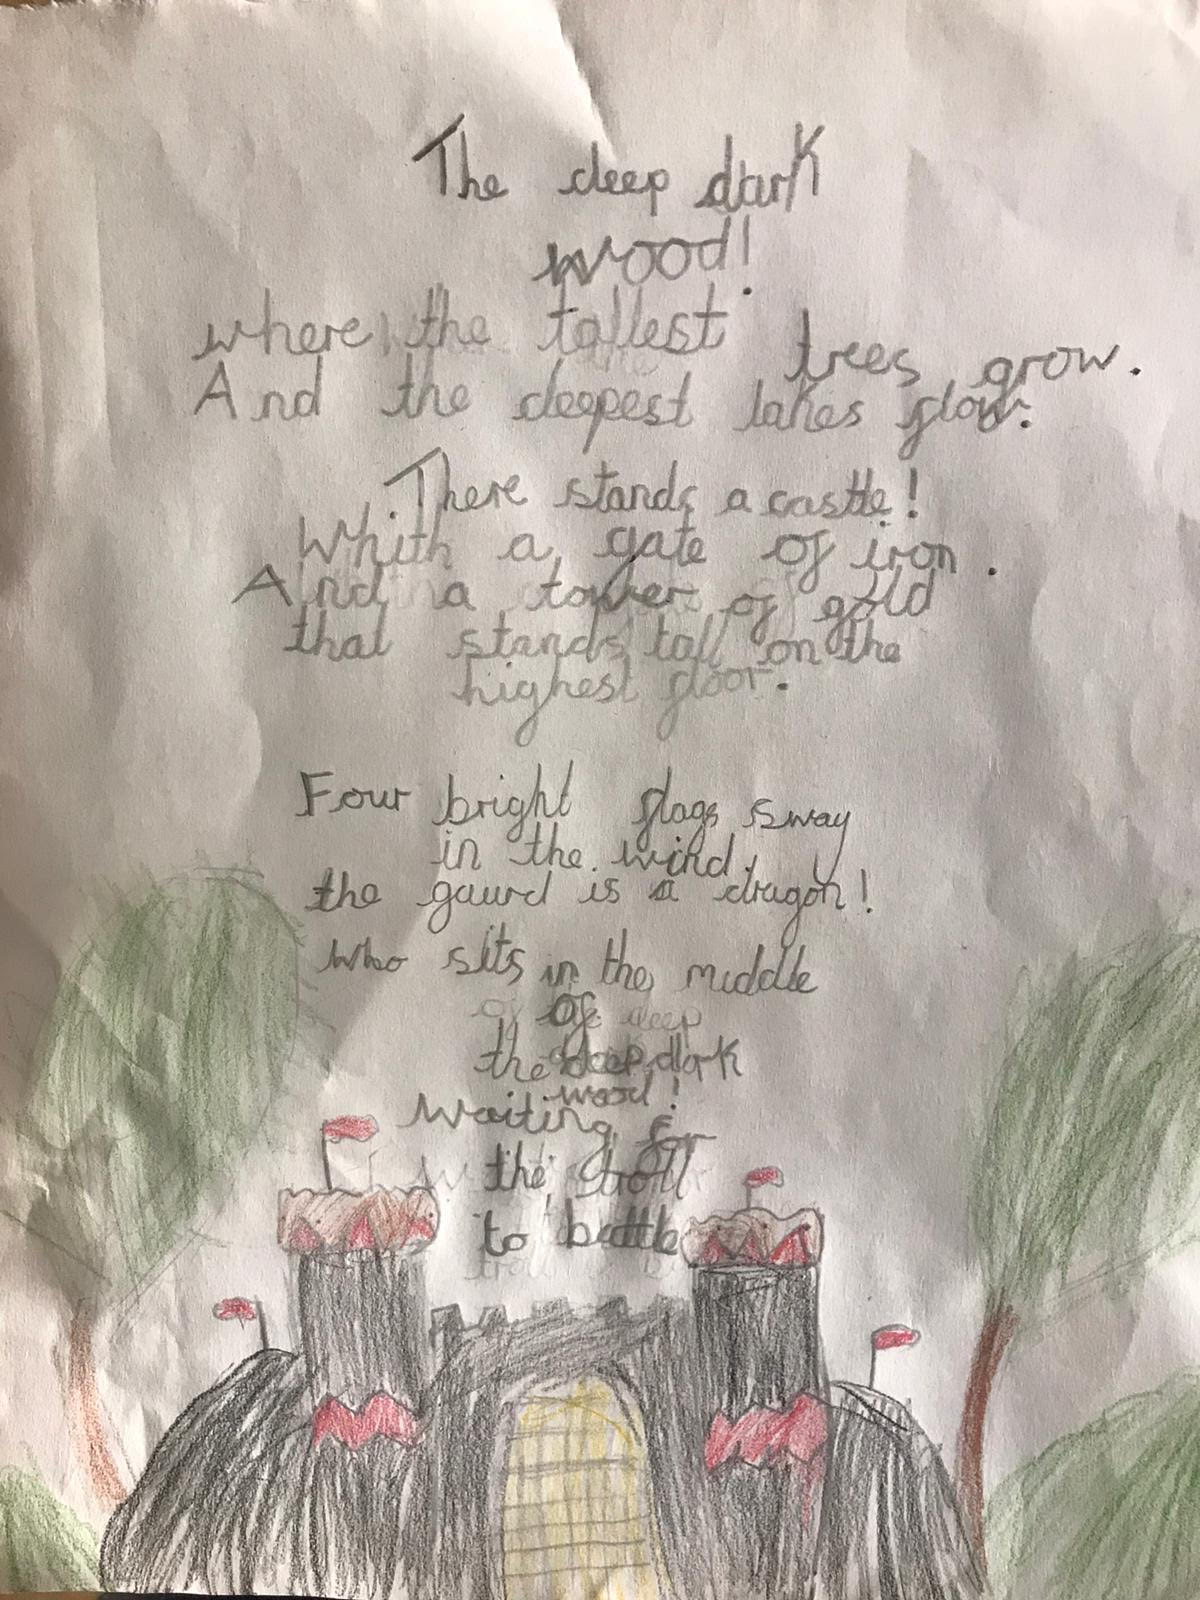 The deep dark
wood!
where the tallest trees grow.
And the deepest lakes flow.
There stands a castle!
Whith a gate of iron.
And a tower of gold
that stands tall on the
highest floor.
Four bright flags sway
in the wind.
the gaurd is a dragon!
who sits in the middle
of
the deep dark
wood!
Waiting for
the troll
to battle